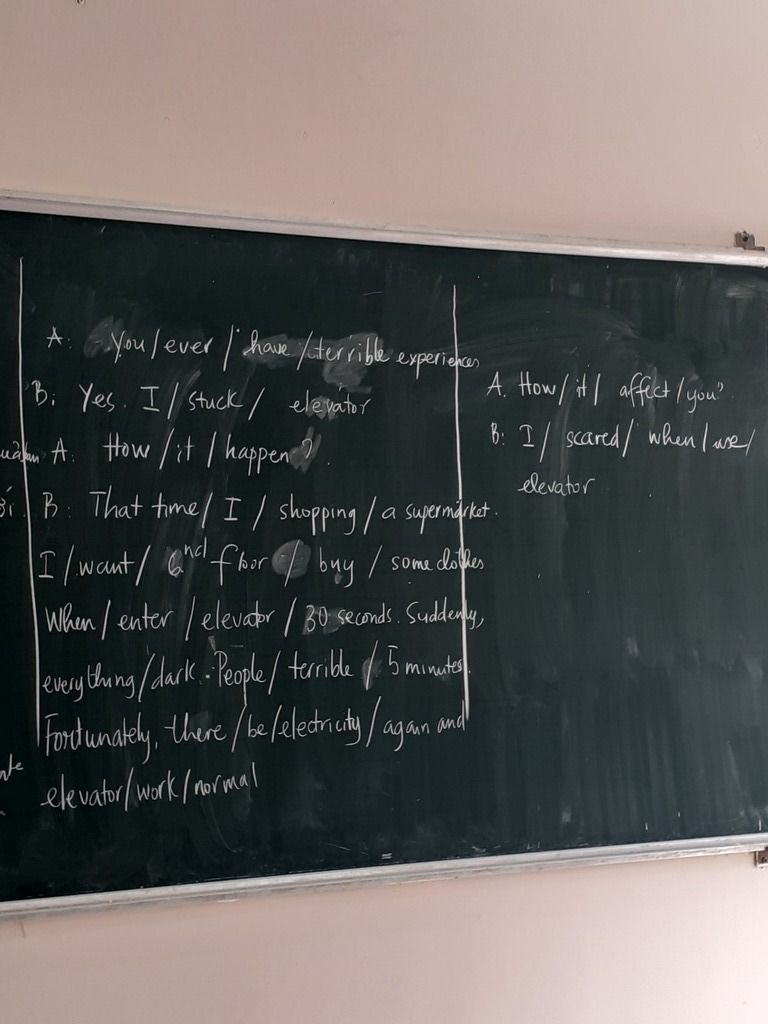 A: You/ever/have/terrible experiences
B: Yes. I/stuck/ elevator
A: How/it/happen?
B: That time/ I / shopping / a supermarket.
I/want/ 6nd floor / buy / some clothes
When/ enter / elevator / 30 seconds. Suddenly,
everything/dark. People/ terrible / 5 minutes.
Fortunately, there/be/electricity/again and
elevator/work/normal
A. How/ it/ affect/you?
B: I/ scared/ when/use/
elevator